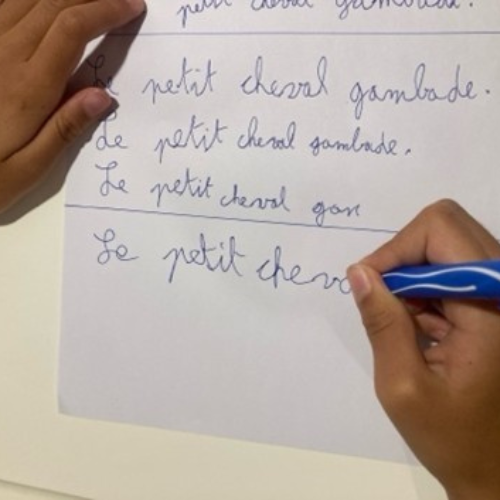 petit cheval gambade.
Le petit cheval gambade.
Le petit cheval gambade.
Le petit cheval gam
Le petit cheva